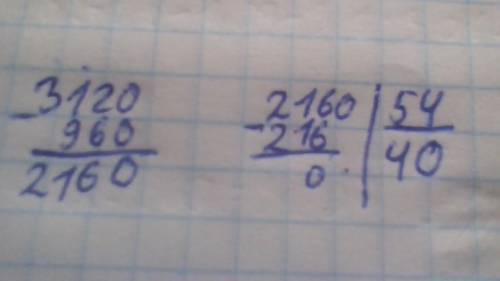 -3120
960
2160
-2160 | 54
216 | 40
0